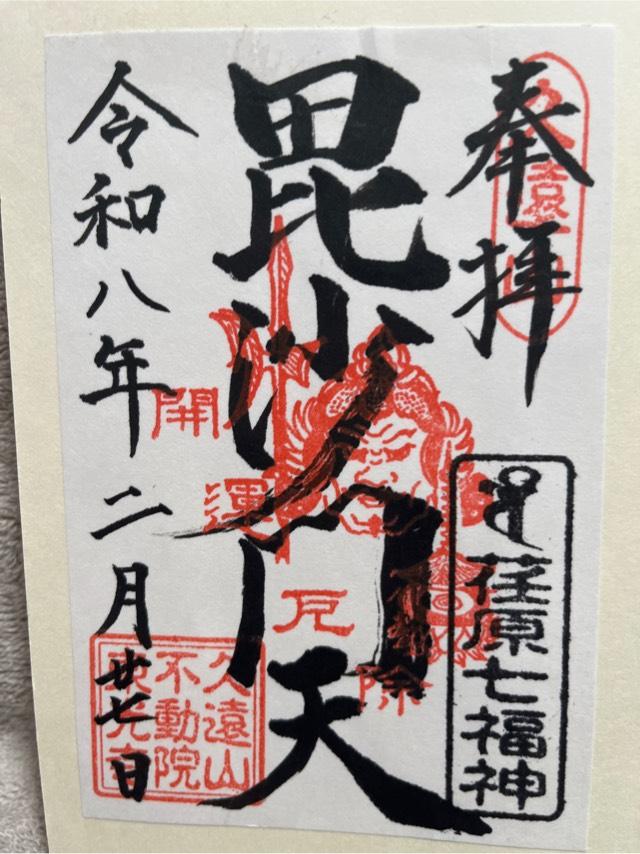 奉拝
久遠山
荏原七福神
毘沙門天
開運
厄除
令和八年二月廿七日
久遠山
不動院
東光寺